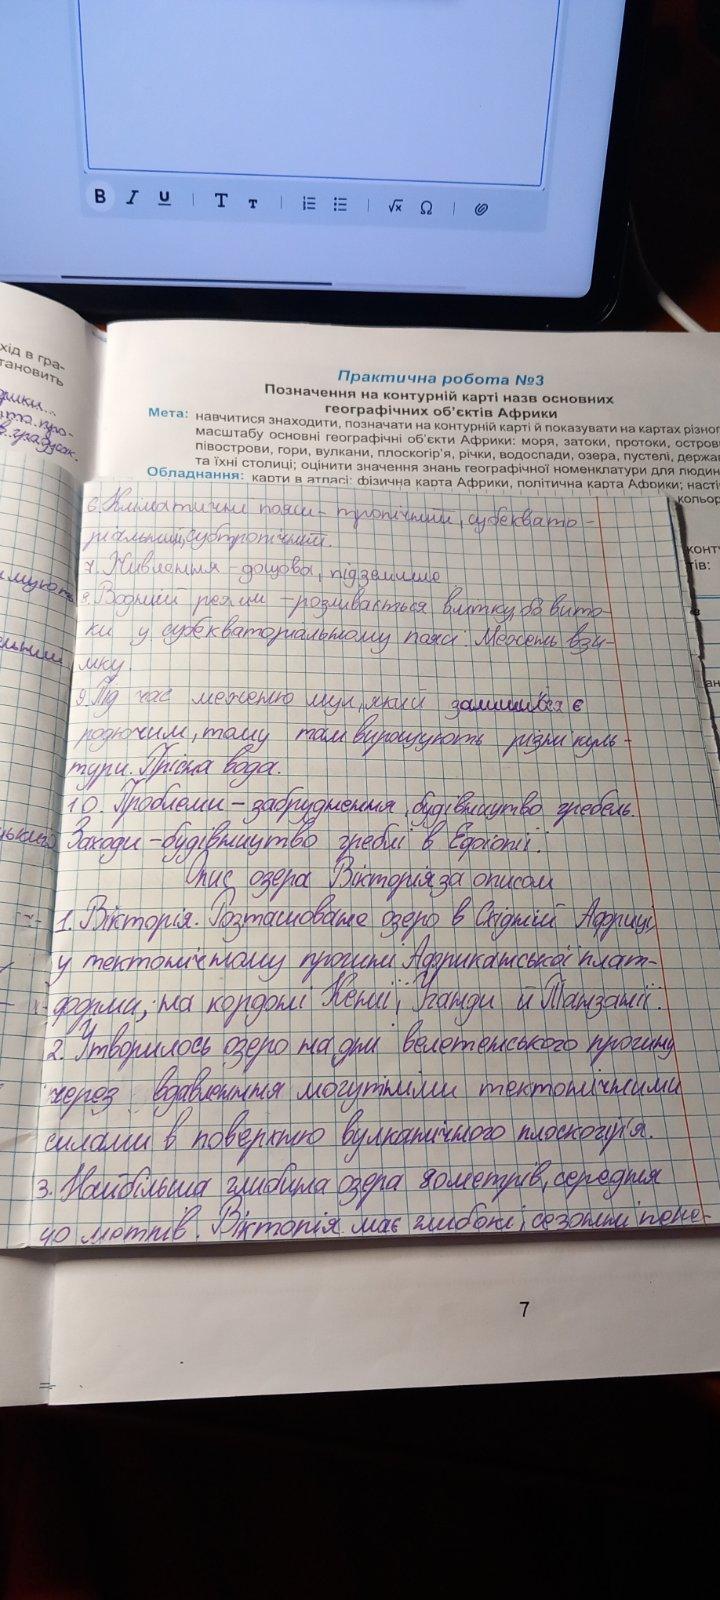 B I U T т √x Ω
хід в гра-
тановить
Практична робота №3
Позначення на контурній карті назв основних
географічних об'єктів Африки
Мета: навчитися знаходити, позначати на контурній карті й показувати на картах різног
масштабу основні географічні об'єкти Африки: моря, затоки, протоки, острови
півострови, гори, вулкани, плоскогір'я, річки, водоспади, озера, пустелі, держав
та їхні столиці; оцінити значення знань географічної номенклатури для людин
Обладнання: карти в атласі: фізична карта Африки, політична карта Африки; насті
кольор
6. Кліматичні пояси - тропічний, субеквато-
ріальний, субтропічний.
7. Живлення - дощова, підземне
8. Водний режим - розливається влітку, бо вито-
ки у субекваторіальному поясі. Межень взи-
мку.
9. Під час межені мул, який залишився є
родючим, тому там вирощують різні куль-
тури. Прісна вода.
10. Проблеми - забруднення, будівництво гребель.
Заходи - будівництво греблі в Ефіопії.
Опис озера Вікторія за описом
1. Вікторія. Розташоване озеро в Східній Африці,
у тектонічному прогині Африканської плат-
форми, на кордоні Кенії, Уганди й Танзанії.
2. Утворилось озеро на дні велетенського прогину
через вдавлення могутніми тектонічними
силами в поверхню вулканічного плоскогір'я.
3. Найбільша глибина озера 80метрів, середня
40 метрів. Вікторія має глибокі, сезонні
7